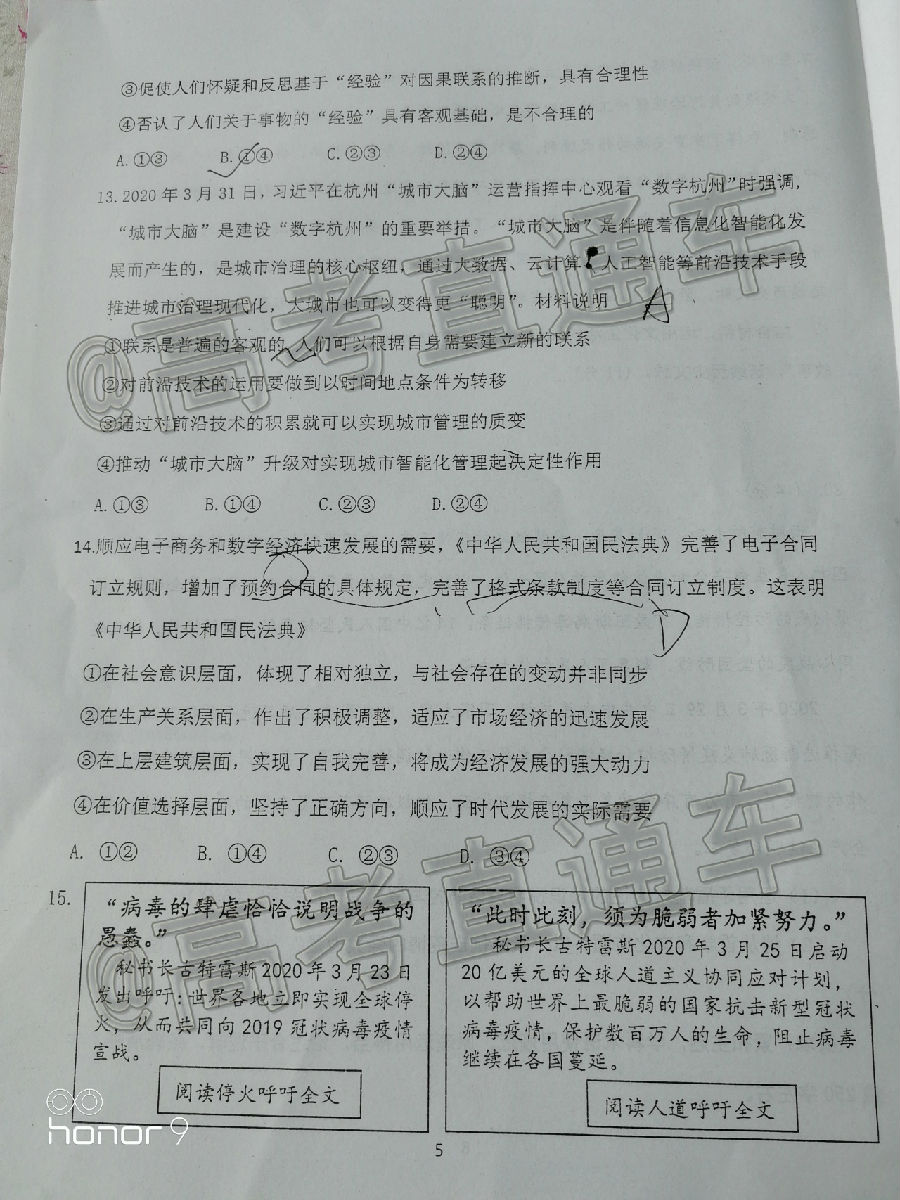 ③促使人们怀疑和反思基于“经验”对因果联系的推断，具有合理性
④否认了人们关于事物的“经验”具有客观基础，是不合理的
A.①③ B.①④ C.②③ D.②④
13.2020年3月31日，习近平在杭州“城市大脑”运营指挥中心观看“数字杭州”时强调，
“城市大脑”是建设“数字杭州”的重要举措。“城市大脑”是伴随着信息化智能化发
展而产生的，是城市治理的核心枢纽，通过大数据、云计算、人工智能等前沿技术手段
推进城市治理现代化，大城市也可以变得更“聪明”。材料说明 A
①联系是普遍的客观的，人们可以根据自身需要建立新的联系
②对前沿技术的运用要做到以时间地点条件为转移
③通过对前沿技术的积累就可以实现城市管理的质变
④推动“城市大脑”升级对实现城市智能化管理起决定性作用
A.①③ B.①④ C.②③ D.②④
14.顺应电子商务和数字经济快速发展的需要，《中华人民共和国民法典》完善了电子合同
订立规则，增加了预约合同的具体规定，完善了格式条款制度等合同订立制度。这表明
《中华人民共和国民法典》 D
①在社会意识层面，体现了相对独立，与社会存在的变动并非同步
②在生产关系层面，作出了积极调整，适应了市场经济的迅速发展
③在上层建筑层面，实现了自我完善，将成为经济发展的强大动力
④在价值选择层面，坚持了正确方向，顺应了时代发展的实际需要
A. ①② B. ①④ C. ②③ D. ③④
15.
“病毒的肆虐恰恰说明战争的
愚蠢。”
秘书长古特雷斯2020年3月23日
发出呼吁:世界各地立即实现全球停
火，从而共同向2019冠状病毒疫情
宣战。
阅读停火呼吁全文
“此时此刻，须为脆弱者加紧努力。”
秘书长古特雷斯2020年3月25日启动
20亿美元的全球人道主义协同应对计划，
以帮助世界上最脆弱的国家抗击新型冠状
病毒疫情，保护数百万人的生命，阻止病毒
继续在各国蔓延。
阅读人道呼吁全文
5
@高考直通车
@高考直通车
honor 9